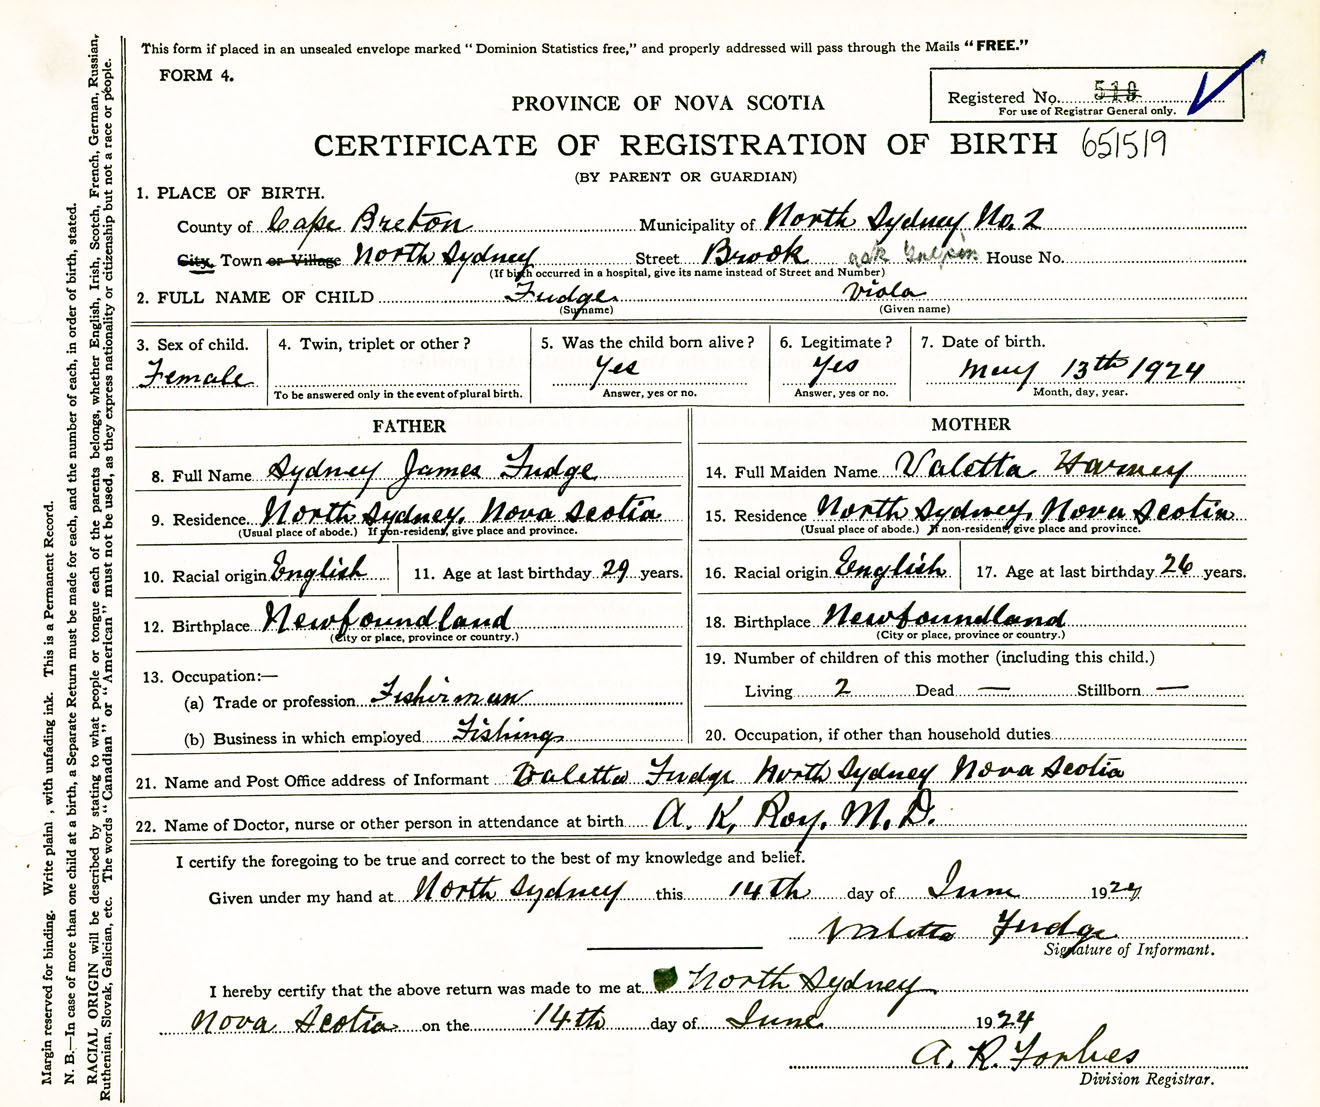 This form if placed in an unsealed envelope marked "Dominion Statistics free," and properly addressed will pass through the Mails "FREE."
FORM 4.
Registered No. 519
For use of Registrar General only.
PROVINCE OF NOVA SCOTIA
CERTIFICATE OF REGISTRATION OF BIRTH 651519
(BY PARENT OR GUARDIAN)
1. PLACE OF BIRTH.
County of Cape Breton Municipality of North Sydney No. 2
City, Town or Village North Sydney Street Brook ask House No.
(If birth occurred in a hospital, give its name instead of Street and Number)
2. FULL NAME OF CHILD Fudge Viola
(Surname) (Given name)
3. Sex of child. 4. Twin, triplet or other? 5. Was the child born alive? 6. Legitimate? 7. Date of birth.
Female Yes Yes May 13th 1924
To be answered only in the event of plural birth. Answer, yes or no. Answer, yes or no. Month, day, year.
FATHER
8. Full Name Sydney James Fudge
9. Residence North Sydney, Nova Scotia
(Usual place of abode.) If non-resident, give place and province.
10. Racial origin English 11. Age at last birthday 29 years.
12. Birthplace Newfoundland
(City or place, province or country.)
13. Occupation:—
(a) Trade or profession Fisherman
(b) Business in which employed Fishing
MOTHER
14. Full Maiden Name Valetta Harvey
15. Residence North Sydney, Nova Scotia
(Usual place of abode.) If non-resident, give place and province.
16. Racial origin English 17. Age at last birthday 26 years.
18. Birthplace Newfoundland
(City or place, province or country.)
19. Number of children of this mother (including this child.)
Living 2 Dead — Stillborn —
20. Occupation, if other than household duties
21. Name and Post Office address of Informant Valetta Fudge North Sydney Nova Scotia
22. Name of Doctor, nurse or other person in attendance at birth A. K. Roy. M. D.
I certify the foregoing to be true and correct to the best of my knowledge and belief.
Given under my hand at North Sydney this 14th day of June 1924
Valetta Fudge
Signature of Informant.
I hereby certify that the above return was made to me at North Sydney
Nova Scotia on the 14th day of June 1924
A. R. Forbes
Division Registrar.
Margin reserved for binding. Write plainl , with unfading ink. This is a Permanent Record.
N. B.—In case of more than one child at a birth, a Separate Return must be made for each, and the number of each, in order of birth, stated.
RACIAL ORIGIN will be described by stating to what people or tongue each of the parents belongs, whether English, Irish, Scotch, French, German, Russian,
Ruthenian, Slovak, Galician, etc. The words "Canadian" or "American" must not be used, as they express nationality or citizenship but not a race or people.